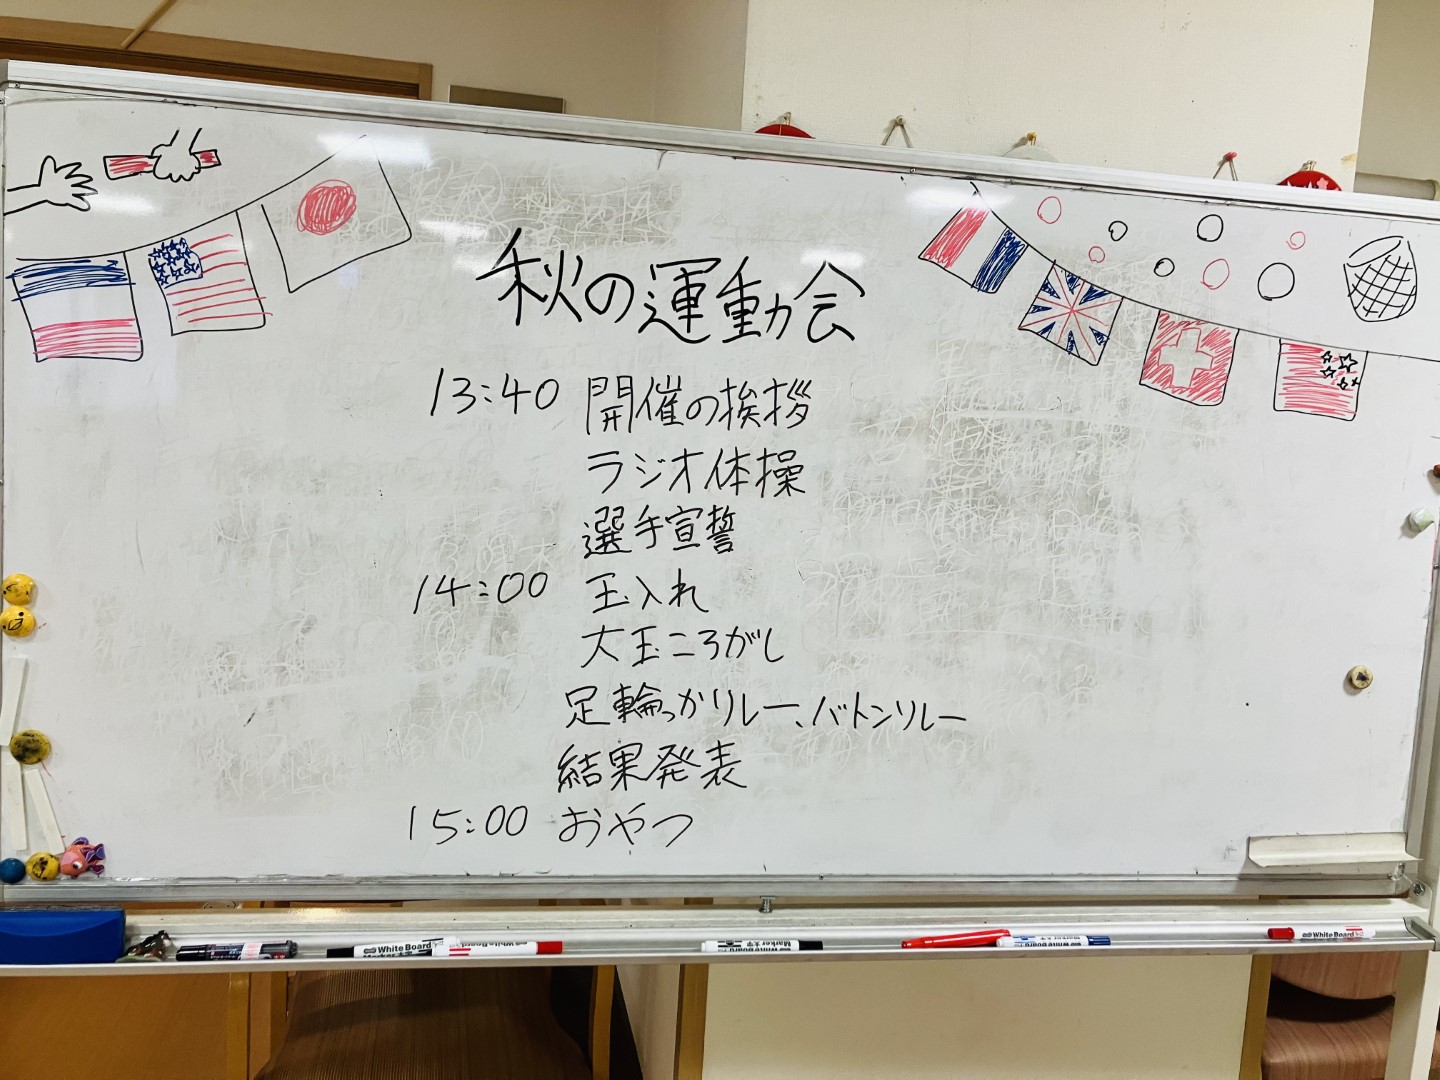 秋の運動会
13:40 開催の挨拶
ラジオ体操
選手宣誓
14:00 玉入れ
大玉ころがし
足輪っかリレー、バトンリレー
結果発表
15:00 おやつ
White Board
Marker
White Board